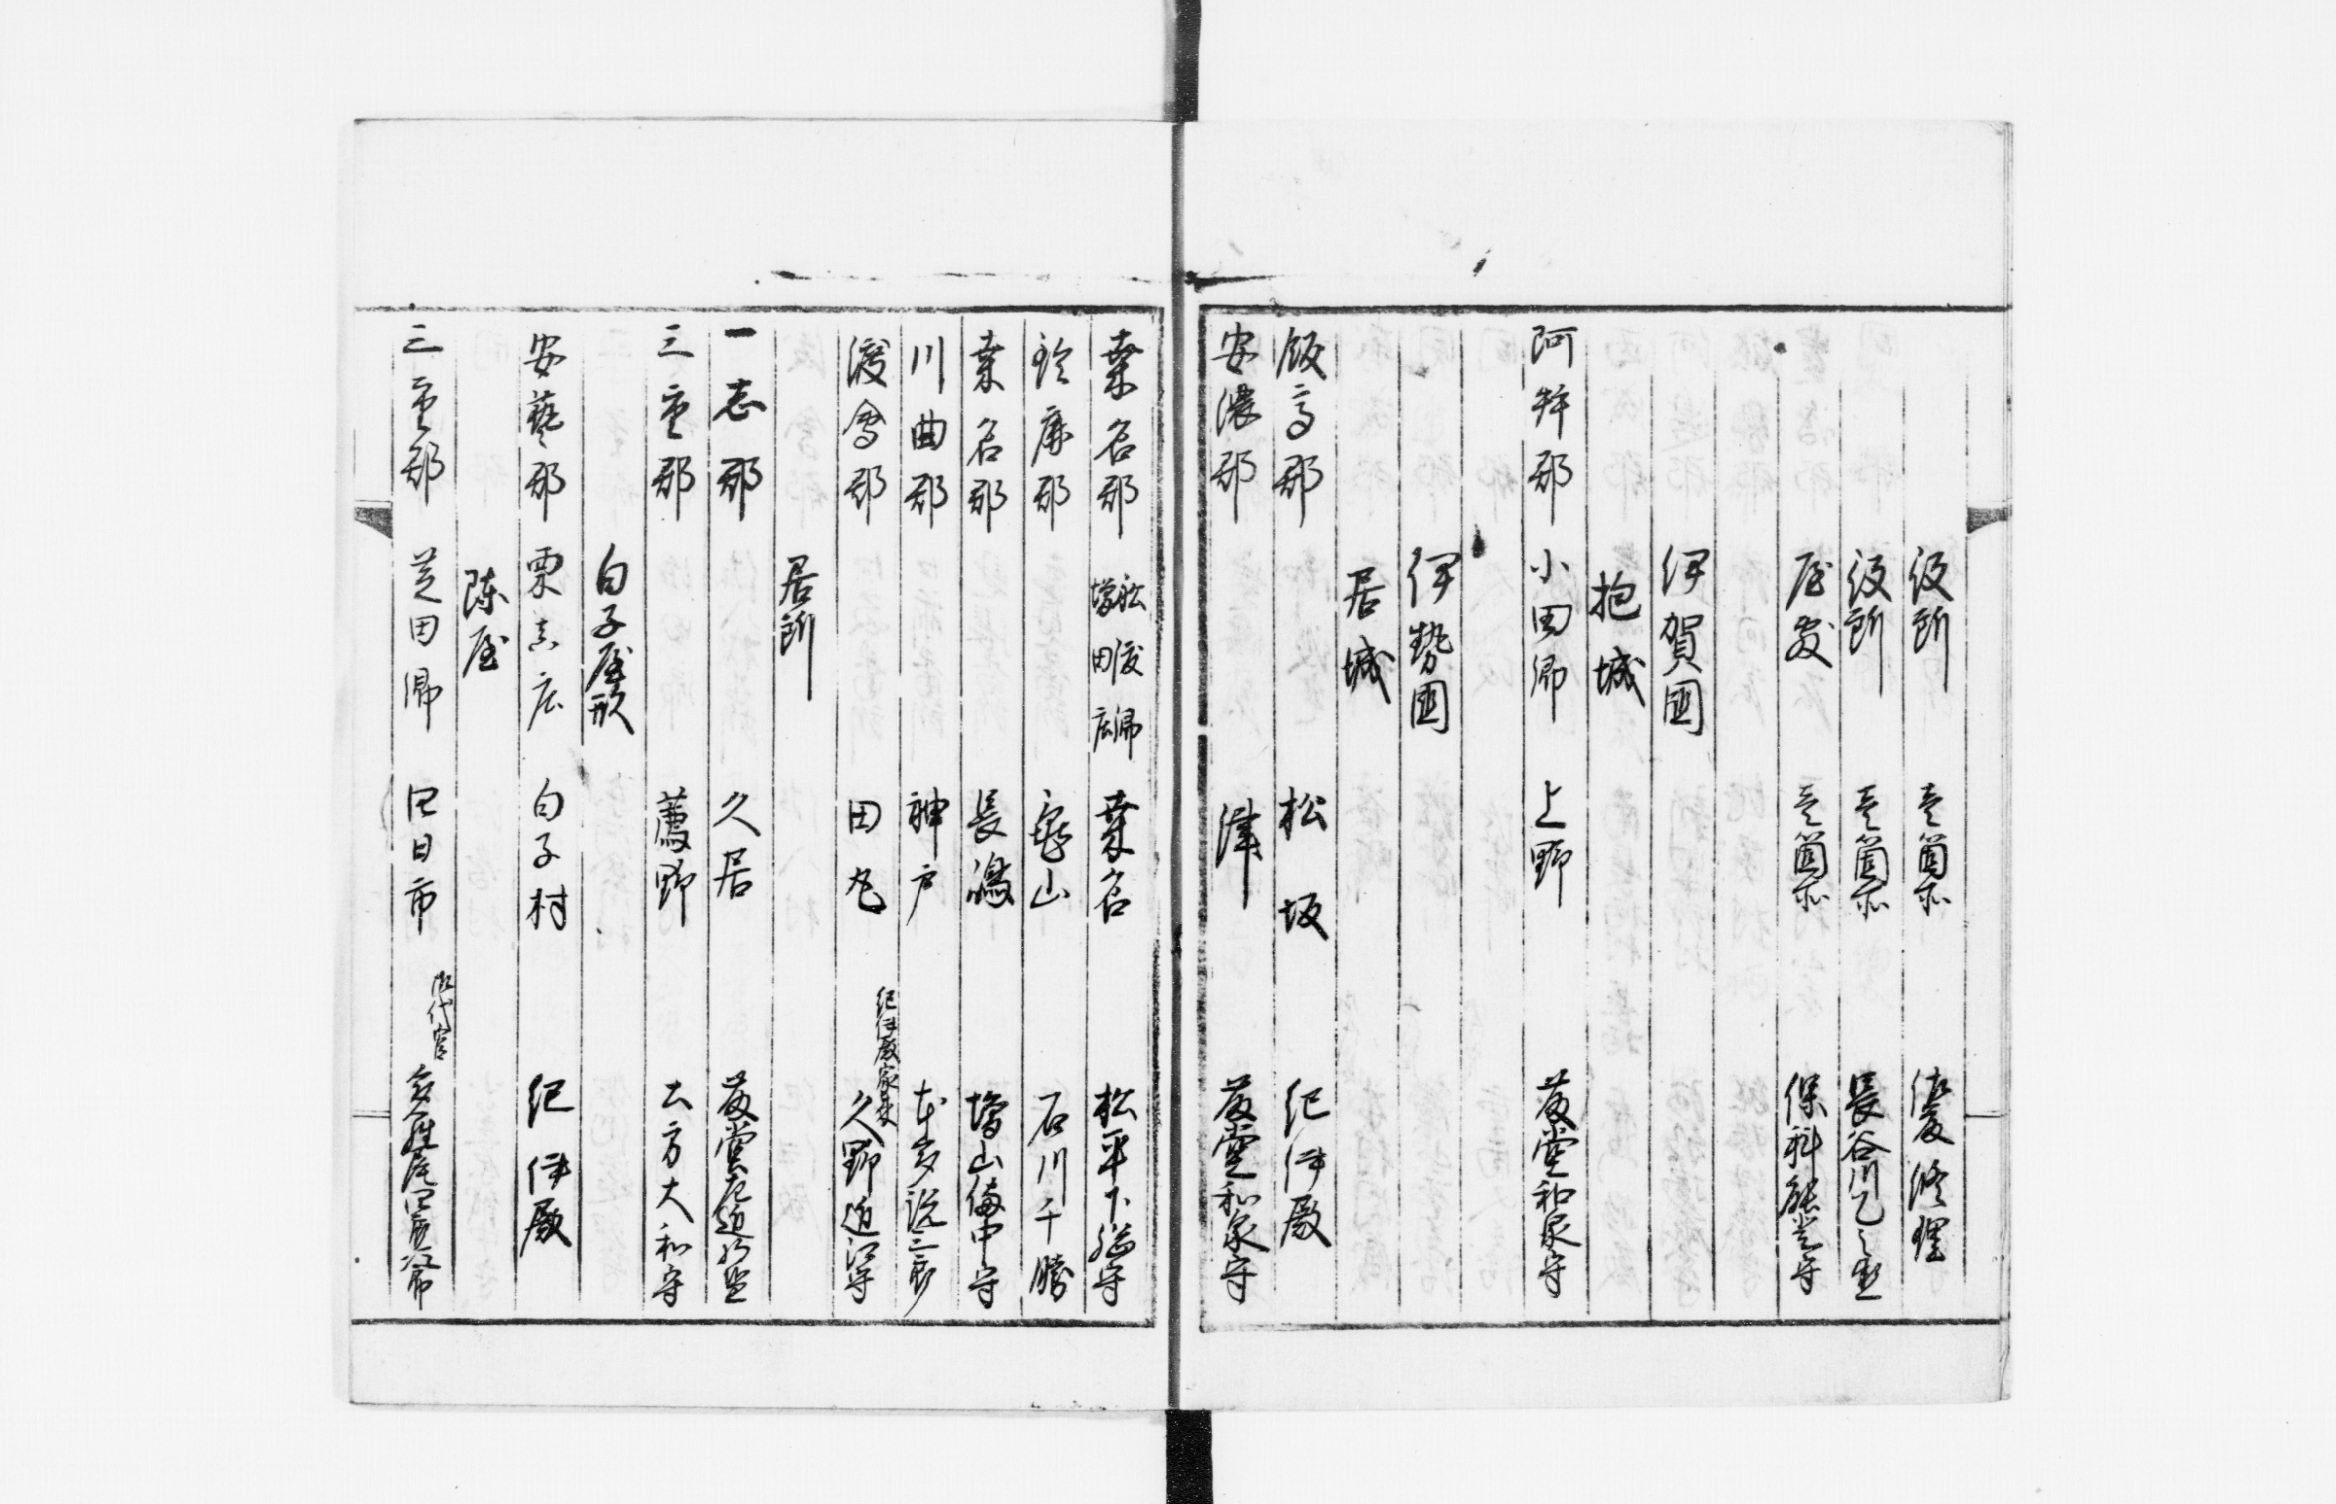 役所 壱箇所 佐久間修理
役所 壱箇所 長谷川
屋敷 壱箇所 保科能登守
伊賀國
抱城
阿拜郡 小田郷 上野 藤堂和泉守
伊勢國
居城
飯高郡 松坂 紀伊殿
安濃郡 津 藤堂和泉守
桑名郡 松渡郷 増田庄 桑名 松平下総守
鈴鹿郡 亀山 石川千勝
桑名郡 長嶋 増山備中守
川曲郡 神戸 本多説三郎
渡會郡 田丸 紀伊殿家来 久野近江守
居所
一志郡 久居 藤堂左近将監
三重郡 薦野 土方大和守
白子屋形
安藝郡 栗真庄 白子村 紀伊殿
陣屋
三重郡 芝田郷 四日市 御代官 多羅尾四郎次郎